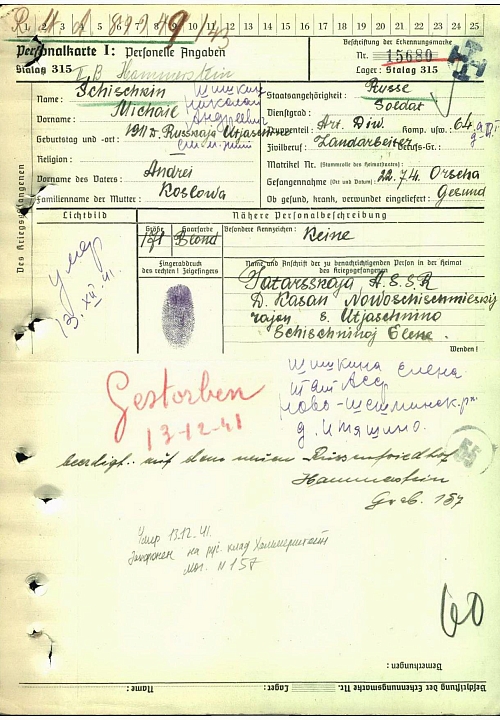 1 2 3 4 5 6 7 8 9 10 11 12 13 14 15 16 17 18 19 20 21 22 23 24 25
Personalkarte I: Personelle Angaben
Beschriftung der Erkennungsmarke
Nr. 15680
Stalag 315 II B Hammerstein
Lager: Stalag 315
Des Kriegsgefangenen
Name: Schischkin Шишкин
Vorname: Michail Николай Андреевич
Geburtstag und -ort: 1911 D. Russkaja Utjaschino
Religion:
Vorname des Vaters: Andrei
Familienname der Mutter: Koslowa
Staatsangehörigkeit: Russe
Dienstgrad: Soldat
Truppenteil: Art. Div. Komp. usw. 64
Zivilberuf: Landarbeiter Berufs-Gr.:
Matrikel Nr. (Stammrolle des Heimatstaates):
Gefangennahme (Ort und Datum): 22.7.41. Orscha
Ob gesund, krank, verwundet eingeliefert: Gesund
Lichtbild
Nähere Personalbeschreibung
Größe Haarfarbe Besondere Kennzeichen:
171 Blond Keine
Fingerabdruck
des rechten! Zeigefingers
Name und Anschrift der zu benachrichtigenden Person in der Heimat
des Kriegsgefangenen
Tatarsskaja A.S.S.R
D. Kasan Nowoschischminskij
rajon s. Utjaschnino
Schischninoj Elene
Wenden!
умер
13.XII 41.
Шишкина Елена
тат АССР
Ново-Шешминск. р-н
д. Утяшино.
Gestorben
13-12-41
beerdigt auf dem neuen Russenfriedhof
Hammerstein
Grab. 157
55
Умер 13.12.41.
Захоронен на рус. клад Хаммерштейн
мог. N 157
60
Bemerkungen:
Name:
Lager:
Beschriftung der Erkennungsmarke Nr.